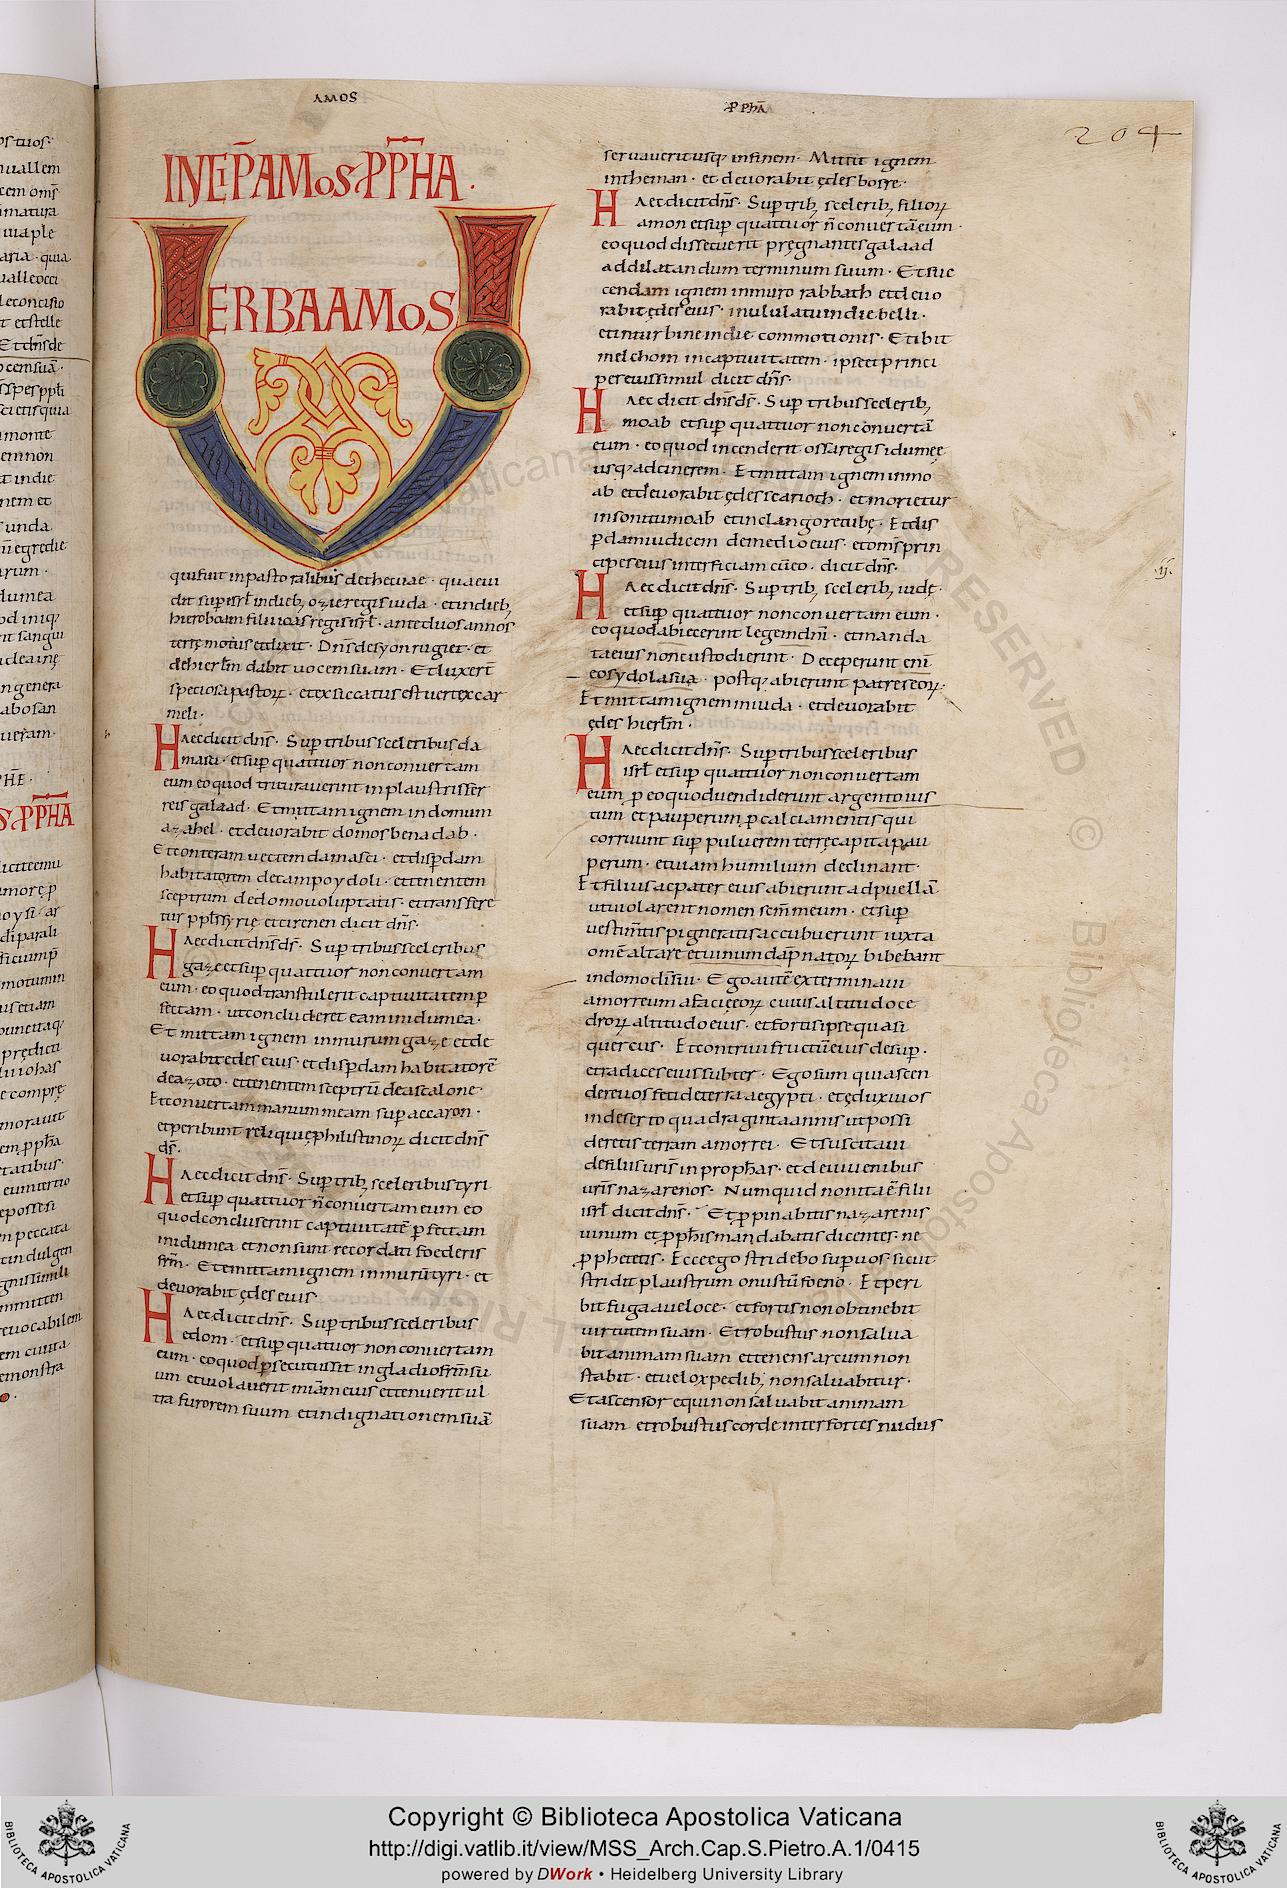 AMOS
PPHA
204
INCIP AMOS PPHA·
VERBA AMOS
qui fuit in pastoralibus de thecuae· quae ui
dit sup isrl in dieb; oziae regis iuda· et in dieb;
hieroboam filii ioas regis isrl· ante duos annos
terrę motus et dixit· Dns de syon rugiet· et
de hierlm dabit uocem suam· Et luxert
speciosa pastor· et exsiccatus est uertex car
meli·
Haec dicit dns· Sup tribus sceleribus da
masci· et sup quattuor non conuertam
eum eo quod triturauerint in plaustris fer
reis galaad· Et mittam ignem in domum
azahel· et deuorabit domos benadab·
Et conteram uectem damasci· et disperdam
habitatorem de campo ydoli· et tenentem
sceptrum de domo uoluptatis· et transfere
tur pphs syrię et cirenen dicit dns·
Haec dicit dns ds· Sup tribus sceleribus
gaze et sup quattuor non conuertam
eum· eo quod transtulerit captiuitatem p
fectam· ut concluderet eam in idumea·
Et mittam ignem in murum gaze et de
uorabit edes eius· et disperdam habitatorē
de azoto· et tenentem sceptrū de ascalone·
Et conuertam manum meam sup accaron·
et peribunt reliquię philistinor dicit dns
ds·
Haec dicit dns· Sup trib; sceleribus tyri
et sup quattuor n conuertam eum eo
quod concluserint captiuitatē pfectam
in idumea et non sunt recordati foederis
frm· Et emittam ignem in murū tyri· et
deuorabit ędes eius
Haec dicit dns· Sup tribus sceleribus
edom· et sup quattuor non conuertam
eum· eo quod psecutus sit in gladio frm su
um et uiolauerit miam eius et tenuerit ul
tra furorem suum et indignationem suā
seruauerit usq; in finem· Mittit ignem
in theman· et deuorabit ędes bosre·
Haec dicit dns· Sup trib; scelerib; filior
amon et sup quattuor n conuertā eum·
eo quod dissecuerit pręgnantes galaad
ad dilatandum terminum suum· Et suc
cendam ignem in muro rabbath et deuo
rabit ędes eius· in ululatu in die belli·
et in turbine in die commotionis· Et ibit
melchom in captiuitatem· ipse et princi
pes eius simul dicit dns·
Haec dicit dns ds· Sup tribus scelerib;
moab et sup quattuor non conuertā
eum· eo quod incenderit ossa regis idumęę
usq; ad cinerem· Et mittam ignem in mo
ab et deuorabit ędes scarioth· et morietur
in sonitu moab et in clangore tubę· Et dis
pdam iudicem de medio eius· et oms prin
cipes eius interficiam cū eo· dicit dns·
Haec dicit dns· Sup trib; scelerib; iudę·
et sup quattuor non conuertam eum·
eo quod abiecerint legem dni· et manda
ta eius non custodierint· Deceperunt eni
eos ydola sua· post q; abierunt patres eor·
Et mittam ignem in iuda· et deuorabit
ędes hierlm·
Haec dicit dns· Sup tribus sceleribus
isrl et sup quattuor non conuertam
eum p eo quod uendiderunt argento ius
tum et pauperum p calciamentis qui
corruunt sup puluerem terrę capita pau
perum· et uiam humilium declinant·
Et filius ac pater eius abierunt ad puellā·
ut uiolarent nomen scm meum· et sup
uestimtis pigneratis accubuerunt iuxta
omē altare et uinum dapnator bibebant
in domo di sui· Ego autē exterminaui
amorreum a facię eor cuius altitudo ce
dror altitudo eius· et fortis ipse quasi
quercus· Et contriui fructū eius desup·
et radices eius subter· Ego sum qui ascen
dere uos feci de terra aegypti· et eduxi uos
in deserto quadraginta annis ut possi
deretis terram amorrei· Et suscitaui
de filiis uris in prophas· et de iuuenibus
uris nazarenos· Numquid non ita ē filii
isrl dicit dns· Et ppinabitis nazarenis
uinum et pphis mandabatis dicentes· ne
pphetetis· Ecce ego stridebo sup uos· sicut
stridit plaustrum onustū foeno· Et peri
bit fuga a ueloce· et fortis non obtinebit
uirtutem suam· Et robustus non salua
bit animam suam et tenens arcum non
stabit· et uelox pedib; non saluabitur·
Et ascensor equi non saluabit animam
suam et robustus corde inter fortes nudus
Copyright © Biblioteca Apostolica Vaticana
http://digi.vatlib.it/view/MSS_Arch.Cap.S.Pietro.A.1/0415
powered by DWork • Heidelberg University Library
BIBLIOTECA APOSTOLICA VATICANA
BIBLIOTECA APOSTOLICA VATICANA